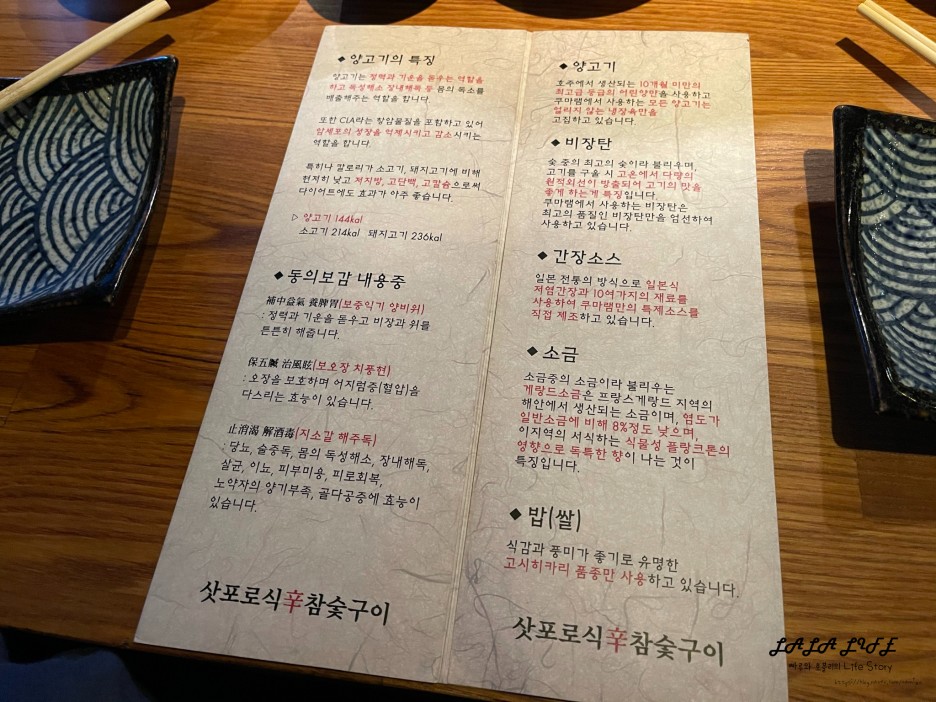 ◆ 양고기의 특징
양고기는 정력과 기운을 돋우는 역할을
하고 독성해소 장내해독 등 몸의 독소를
배출해주는 역할을 합니다.
또한 CLA라는 항암물질을 포함하고 있어
암세포의 성장을 억제시키고 감소시키는
역할을 합니다.
특히나 칼로리가 소고기, 돼지고기에 비해
현저히 낮고 저지방, 고단백, 고칼슘으로써
다이어트에도 효과가 아주 좋습니다.
▷ 양고기 144kal
소고기 214kal 돼지고기 236kal
◆ 동의보감 내용중
補中益氣 養脾胃(보중익기 양비위)
: 정력과 기운을 돋우고 비장과 위를
튼튼히 해줍니다.
保五臟 治風眩(보오장 치풍현)
: 오장을 보호하며 어지럼증(혈압)을
다스리는 효능이 있습니다.
止消渴 解酒毒(지소갈 해주독)
: 당뇨, 술중독, 몸의 독성해소, 장내해독,
살균, 이뇨, 피부미용, 피로회복,
노약자의 양기부족, 골다공증에 효능이
있습니다.
삿포로식辛참숯구이
◆ 양고기
호주에서 생산되는 10개월 미만의
최고급 등급의 어린양만을 사용하고
쿠마램에서 사용하는 모든 양고기는
얼리지 않는 냉장육만을
고집하고 있습니다.
◆ 비장탄
숯 중의 최고의 숯이라 불리우며,
고기를 구울 시 고온에서 다량의
원적외선이 방출되어 고기의 맛을
좋게 하는게 특징입니다.
쿠마램에서 사용하는 비장탄은
최고의 품질인 비장탄만을 엄선하여
사용하고 있습니다.
◆ 간장소스
일본 전통의 방식으로 일본식
저염간장과 10여가지의 재료를
사용하여 쿠마램만의 특제소스를
직접 제조하고 있습니다.
◆ 소금
소금중의 소금이라 불리우는
게랑드소금은 프랑스게랑드 지역의
해안에서 생산되는 소금이며, 염도가
일반소금에 비해 8%정도 낮으며,
이지역의 서식하는 식물성 플랑크톤의
영향으로 독특한 향이 나는 것이
특징입니다.
◆ 밥(쌀)
식감과 풍미가 좋기로 유명한
고시히카리 품종만 사용하고 있습니다.
삿포로식辛참숯구이
LALA LIFE
Life Story